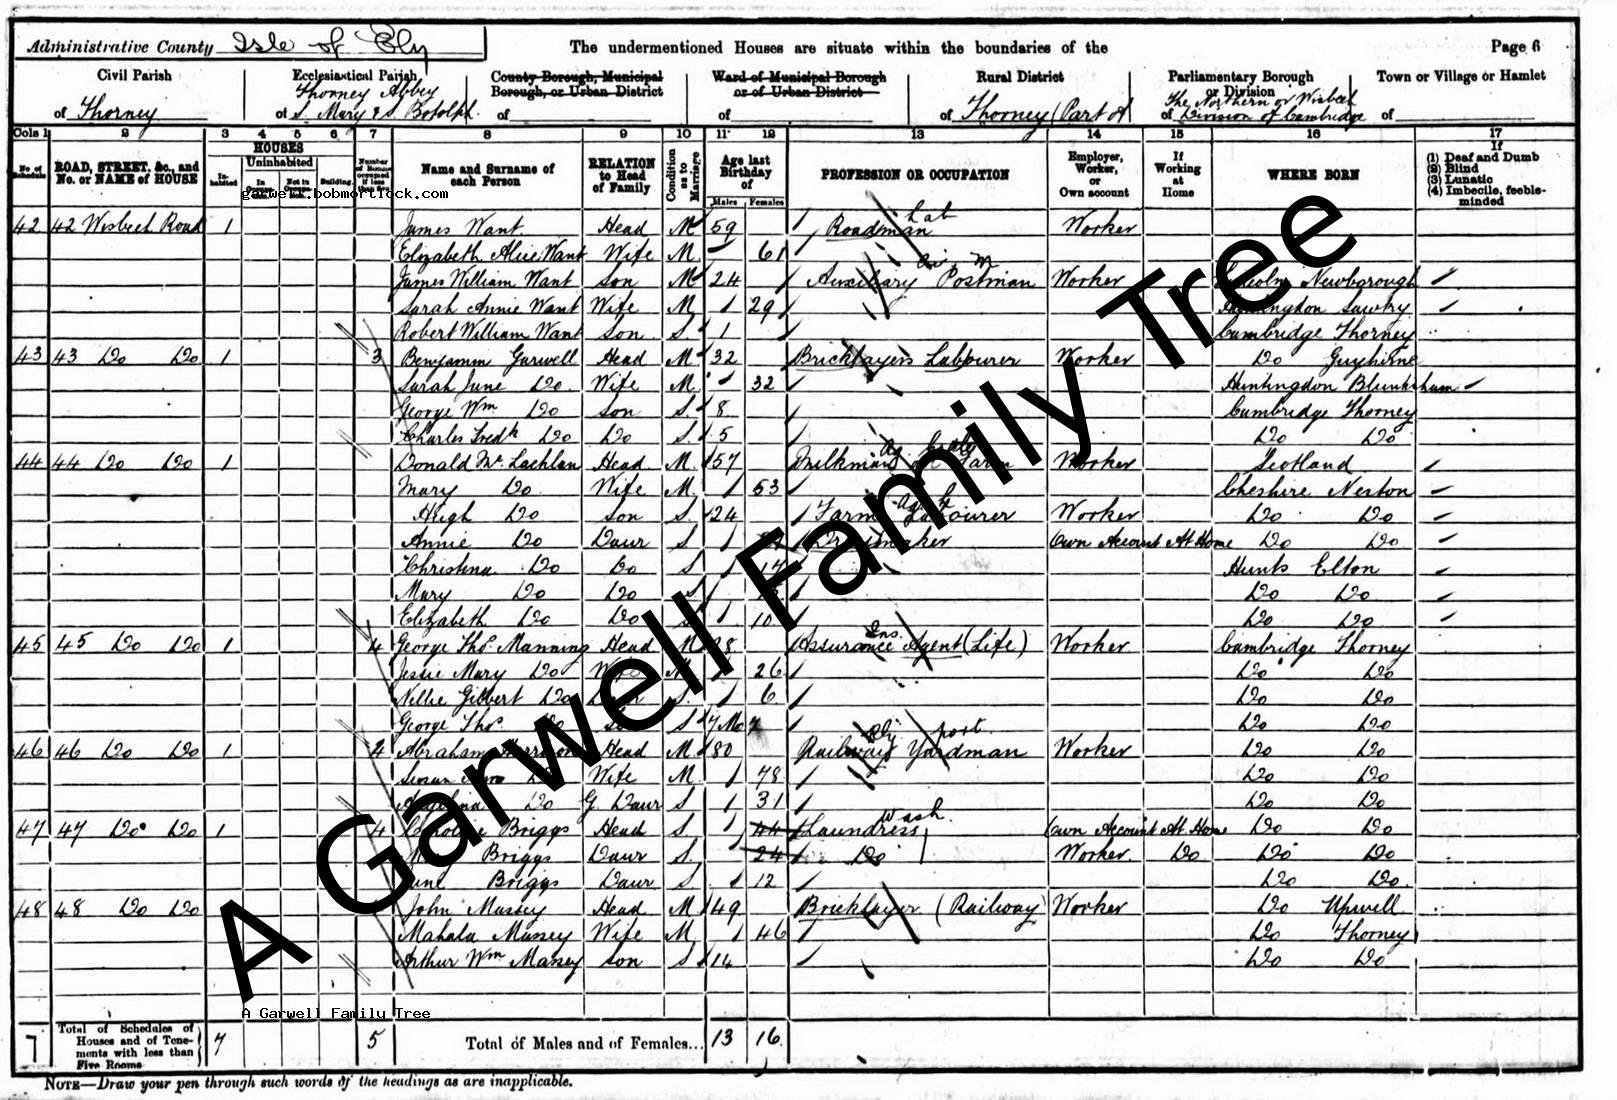 Administrative County Isle of Ely The undermentioned Houses are situate within the boundaries of the Page 6
Civil Parish Ecclesiastical Parish County Borough, Municipal Borough, or Urban District Ward of Municipal Borough or of Urban District Rural District Parliamentary Borough or Division Town or Village or Hamlet
of Thorney of Thorney Abbey S. Mary & S. Botolph. of of of Thorney (Part of of The Northern or Wisbech Division of Cambridge of
Cols 1 2 3 4 5 6 7 8 9 10 11 12 13 14 15 16 17
No. of Schedule ROAD, STREET, &c., and No. or NAME of HOUSE HOUSES Inhabited Uninhabited Building Name and Surname of each Person RELATION to Head of Family Condition as to Marriage Age last Birthday of Males Females PROFESSION OR OCCUPATION Employer, Worker, or Own account If Working at Home WHERE BORN If (1) Deaf and Dumb (2) Blind (3) Lunatic (4) Imbecile, feeble-minded
garwell.bobmortlock.com
42 42 Wisbech Road 1 James Want Head M 59 Roadman Lab Worker
Elizabeth Alice Want Wife M 61
James William Want Son M 24 Auxiliary Postman Worker Newborough
Sarah Annie Want Wife M 29 Sawtry
Robert William Want Son S. 1 Cambridge Thorney
43 43 Do Do 1 3 Benjamin Garwell Head M 32 Bricklayers Labourer Worker Do Guyhirne
Sarah Jane Do Wife M 32 Huntingdon
George Wm Do Son S. 8 Cambridge Thorney
Charles Fredk Do Do S. 5 Do Do
44 44 Do Do 1 Donald Mc. Lachlan Head M 57 Milkman on Farm Worker Scotland
Mary Do Wife M 53 Cheshire Neston
Hugh Do Son S. 24 Farm Labourer Worker Do Do
Annie Do Daur S Dressmaker Own Account At Home Do Do
Christina Do Do S 14 Hunts Elton
Mary Do Do S Do Do
Elizabeth Do Do S 10 Do Do
45 45 Do Do 1 4 George Thos. Manning Head M 28 Assurance Agent (Life) Ins. Worker Cambridge Thorney
Jessie Mary Do Wife M 26 Do Do
Nellie Gilbert Do S. 6 Do Do
George Thos. Do S 7 Mo Do Do
46 46 Do Do 1 4 Abraham Head M 80 Railway Yardman port. Worker Do Do
Susan Wife M 78 Do Do
Do G Daur S 31 Do Do
47 47 Do Do 1 4 Briggs Head S. 44 Laundress Wash. Own Account At Home Do Do
Briggs Daur S. 24 Do Worker Do Do Do
Briggs Daur S 12 Do Do
48 48 Do Do John Massey Head M 49 Bricklayer (Railway) Worker Do Upwell
Mahala Massey Wife M 46 Do Thorney
Arthur Wm Massey Son S 14 Do Do
A Garwell Family Tree
A Garwell Family Tree
7 Total of Schedules of Houses and of Tenements with less than Five Rooms 7 5 Total of Males and of Females... 13 16
NOTE—Draw your pen through such words of the headings as are inapplicable.